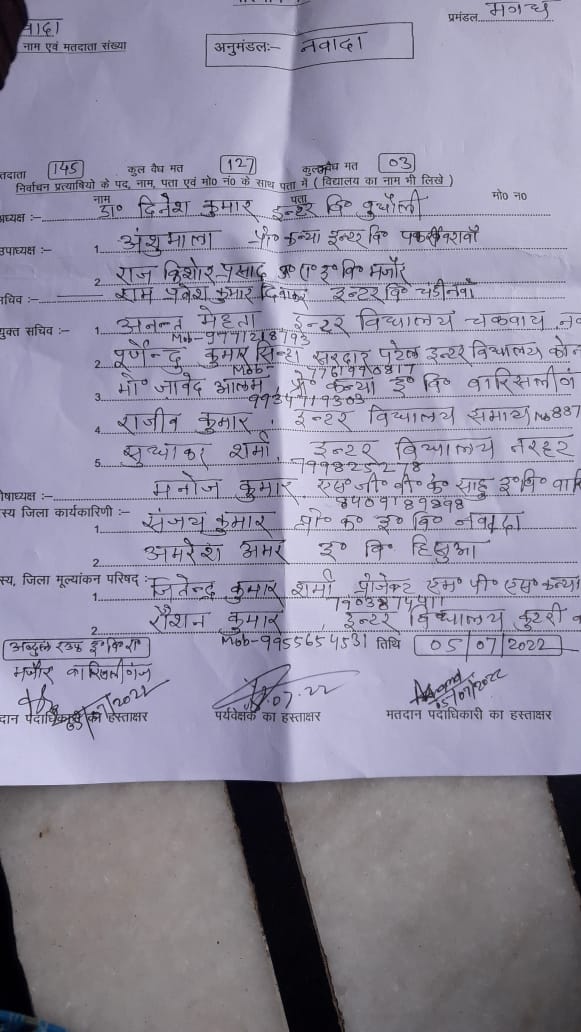 प्रमंडल मगध
वादा
नाम एवं मतदाता संख्या
अनुमंडल:- नवादा
तदाता 145 कुल वैध मत 127 कुल वैध मत 03
निर्वाचन प्रत्याषियो के पद, नाम, पता एवं मो० न० के साथ पता में ( विद्यालय का नाम भी लिखे )
नाम पता मो० न०
अध्यक्ष :- डा० दिनेश कुमार इन्टर वि०
उपाध्यक्ष :- 1. अंशुमाला प्रो० कन्या इन्टर वि०
2. राज किशोर प्रसाद इ० वि० मंजौर
सचिव :- राम प्रवेश कुमार दिवाकर इन्टर वि०
युक्त सचिव :- 1. अनन्त मेहता इन्टर विद्यालय चकवाय
Mob-9771218793
2. पूर्णेन्दु कुमार सिन्हा सरदार पटेल इन्टर विद्यालय
Mob-7761990817
3. मो० जावेद आलम, प्रो० कन्या इ० वि० वारिसलीगं
9934719303
4. राजीव कुमार इन्टर विद्यालय समाय
5. सुधाकर शर्मा इन्टर विद्यालय नरहट
7999825278
षाध्यक्ष :- मनोज कुमार एस० जी० बी० के० साहु इ० वि० वारि
8409189898
स्य जिला कार्यकारिणी :-
1. संजय कुमार प्रो० क० इ० वि० नवादा
2. अमरेश अमर इ० वि० हिसुआ
स्य, जिला मूल्यांकन परिषद् :-
1. जितेन्द्र कुमार शर्मा प्रोजेक्ट एस० पी० एस० कन्या
7903874411
2. रौशन कुमार, इन्टर विद्यालय कुटरी
Mob-9955654531 तिथि 05/07/2022
अब्दुल रउफ इ०
मंजौर वारिसलीगंज
05/07/2022 07.22 05/07/2022
दान पदाधिकारी का हस्ताक्षर पर्यवेक्षक का हस्ताक्षर मतदान पदाधिकारी का हस्ताक्षर